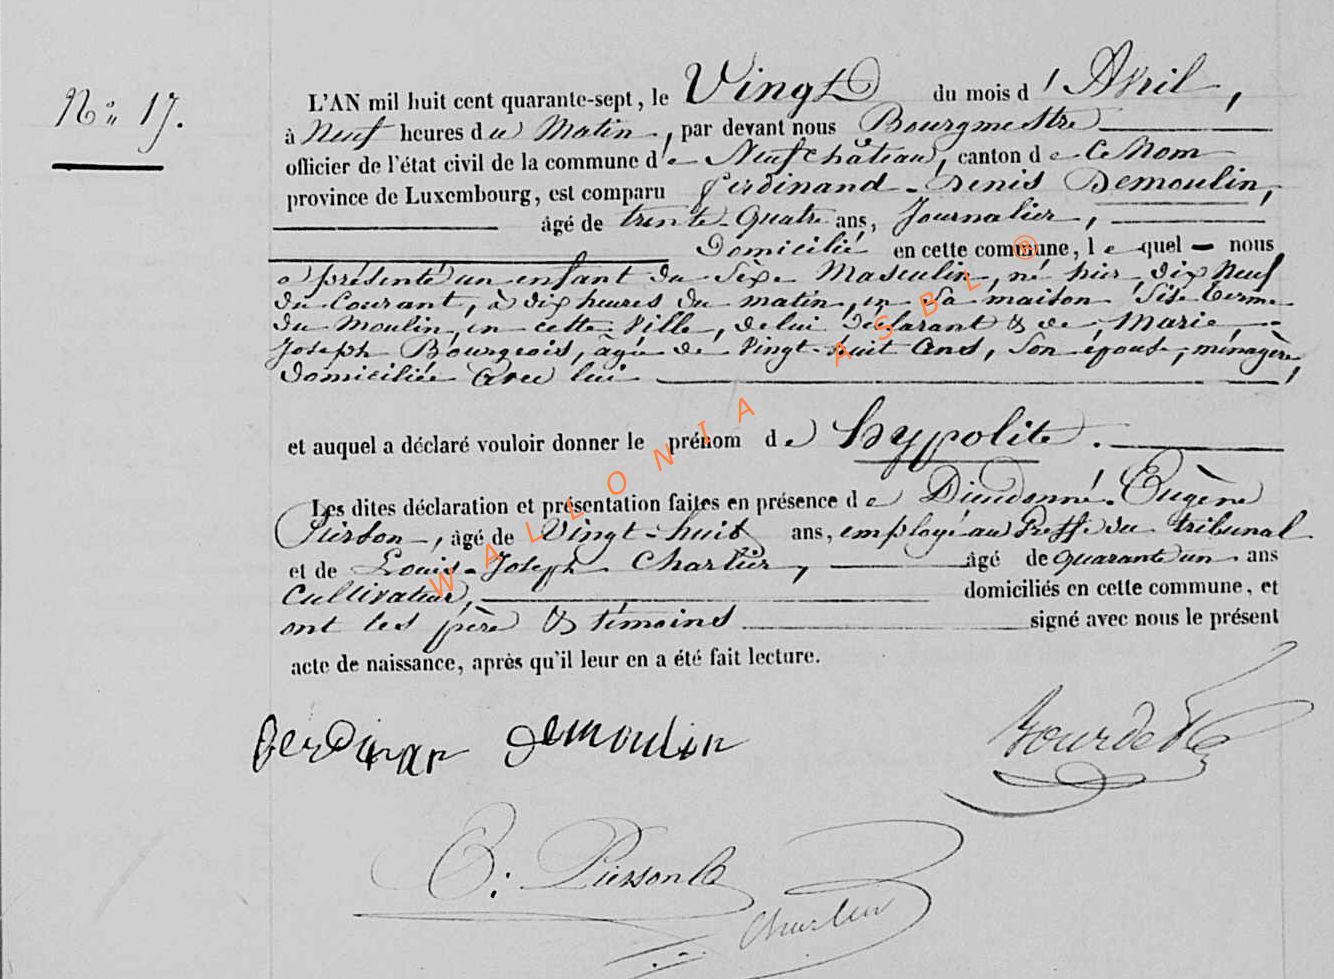 N° 17.
L'AN mil huit cent quarante-sept, le Vingt du mois d'Avril,
à Neuf heures du Matin, par devant nous Bourgmestre
officier de l'état civil de la commune de Neufchâteau, canton de Ce Nom
province de Luxembourg, est comparu Ferdinand-Denis Demoulin,
âgé de trente-quatre ans, Journalier,
Domicilié en cette commune, lequel nous
a présenté un enfant du Sexe Masculin, né hier, dix Neuf
du Courant, à dix heures du matin, en Sa maison Sise terme
du Moulin, en cette Ville, de lui déclarant & de Marie,-
Joseph Bourgeois, âgée de Vingt-huit Ans, Son épouse, ménagère,
Domiciliée avec lui
et auquel a déclaré vouloir donner le prénom de hypolite.
Les dites déclaration et présentation faites en présence de Dieudonné-Eugène
Pierson, âgé de Vingt-huit ans, employé au Greffe du tribunal
et de Louis-Joseph Charlier, âgé de quarante un ans
Cultivateur, domiciliés en cette commune, et
ont les père & témoins signé avec nous le présent
acte de naissance, après qu'il leur en a été fait lecture.
ferdinan demoulin
E: Pierson
Charlier
WALLONIA ASBL ®